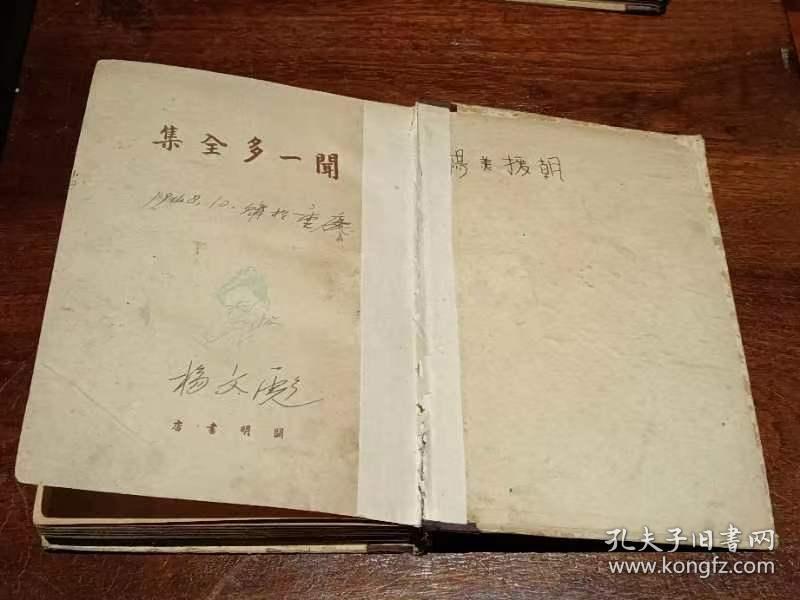 聞一多全集
1948.10.購於重慶
楊文彪
開明書店
楊美援朝
孔夫子旧書网
www.kongfz.com